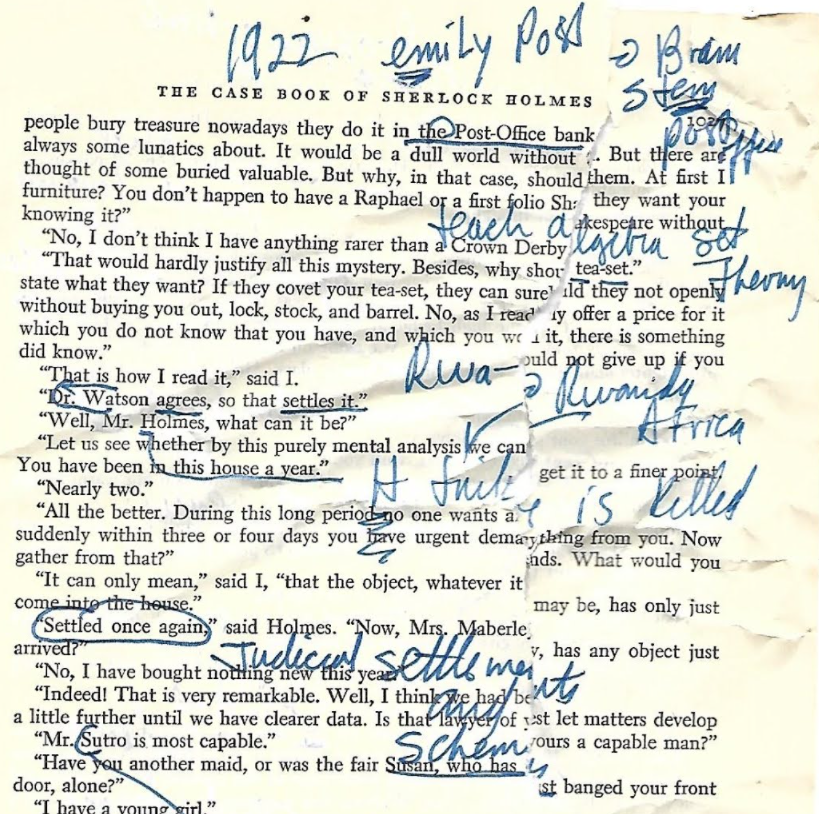 1922 emily Post → Brain
Stem
Post office
THE CASE BOOK OF SHERLOCK HOLMES
people bury treasure nowadays they do it in the Post-Office bank. But there are
always some lunatics about. It would be a dull world without them. At first I
thought of some buried valuable. But why, in that case, should they want your
furniture? You don't happen to have a Raphael or a first folio Shakespeare without
knowing it?"
teach algebra set
Theory
"No, I don't think I have anything rarer than a Crown Derby tea-set."
"That would hardly justify all this mystery. Besides, why should they not openly
state what they want? If they covet your tea-set, they can surely offer a price for it
without buying you out, lock, stock, and barrel. No, as I read it, there is something
which you do not know that you have, and which you would not give up if you
did know."
Rwa-
Africa
"That is how I read it," said I.
"Dr. Watson agrees, so that settles it."
"Well, Mr. Holmes, what can it be?"
"Let us see whether by this purely mental analysis we can get it to a finer point.
You have been in this house a year."
is killed
"Nearly two."
"All the better. During this long period no one wants anything from you. Now
suddenly within three or four days you have urgent demands. What would you
gather from that?"
"It can only mean," said I, "that the object, whatever it may be, has only just
come into the house."
"Settled once again," said Holmes. "Now, Mrs. Maberley, has any object just
arrived?"
Judicial settlements
and
Schemes
"No, I have bought nothing new this year."
"Indeed! That is very remarkable. Well, I think we had best let matters develop
a little further until we have clearer data. Is that lawyer of yours a capable man?"
"Mr. Sutro is most capable."
"Have you another maid, or was the fair Susan, who has just banged your front
door, alone?"
"I have a young girl."